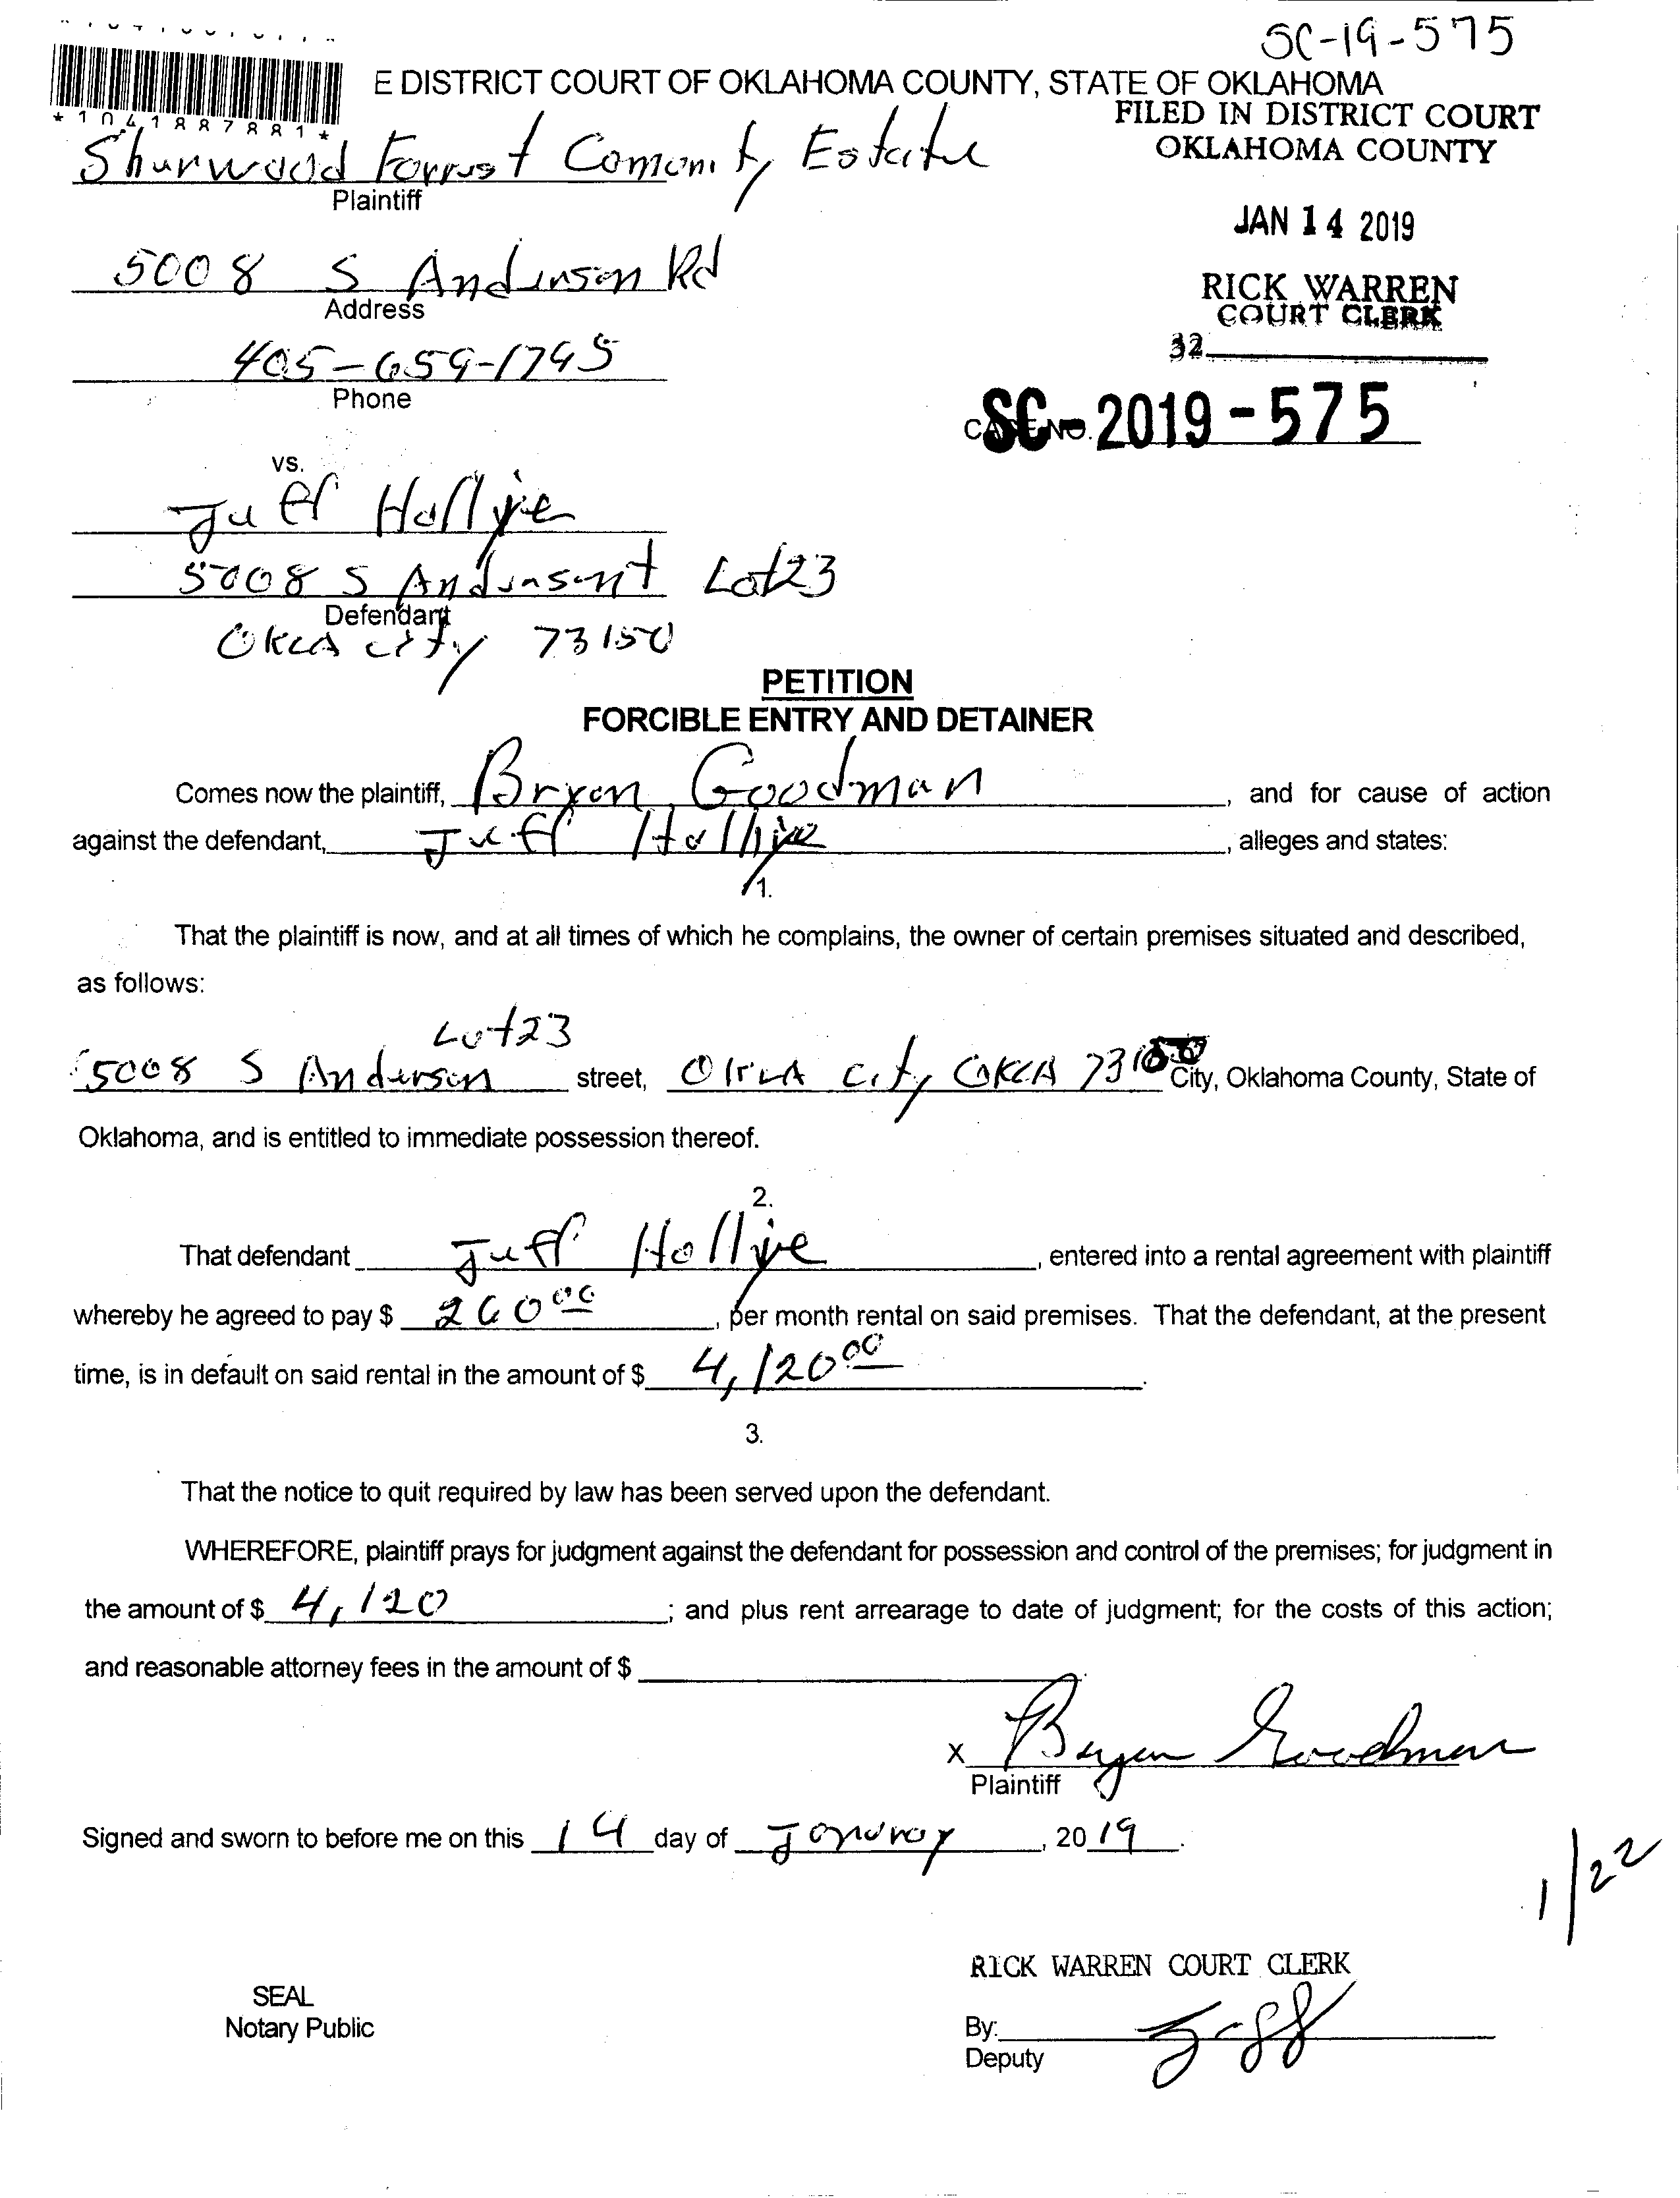 SC-19-575
E DISTRICT COURT OF OKLAHOMA COUNTY, STATE OF OKLAHOMA
*1041887881*
FILED IN DISTRICT COURT
OKLAHOMA COUNTY
Shurwood Forrust Comunity Estate
Plaintiff
JAN 14 2019
5008 S Anderson Rd
Address
RICK WARREN
COURT CLERK
32
405-659-1795
Phone
CASE NO. SC-2019-575
vs.
Jeff Hollyie
5008 S Anderson Lot 23
Defendant
OKLA city 73150
PETITION
FORCIBLE ENTRY AND DETAINER
Comes now the plaintiff, Bryon Goodman, and for cause of action
against the defendant, Jeff Hollyie, alleges and states:
1.
That the plaintiff is now, and at all times of which he complains, the owner of certain premises situated and described,
as follows:
Lot 23
5008 S Anderson street, OKLA City OKLA City, Oklahoma County, State of
Oklahoma, and is entitled to immediate possession thereof.
2.
That defendant Jeff Hollyie, entered into a rental agreement with plaintiff
whereby he agreed to pay $ 260 00, per month rental on said premises. That the defendant, at the present
time, is in default on said rental in the amount of $ 4,120 00.
3.
That the notice to quit required by law has been served upon the defendant.
WHEREFORE, plaintiff prays for judgment against the defendant for possession and control of the premises; for judgment in
the amount of $ 4,120; and plus rent arrearage to date of judgment; for the costs of this action;
and reasonable attorney fees in the amount of $
x Bryon Goodman
Plaintiff
Signed and sworn to before me on this 14 day of Jonuray, 2019.
1/22
RICK WARREN COURT CLERK
SEAL
Notary Public
By:
Deputy